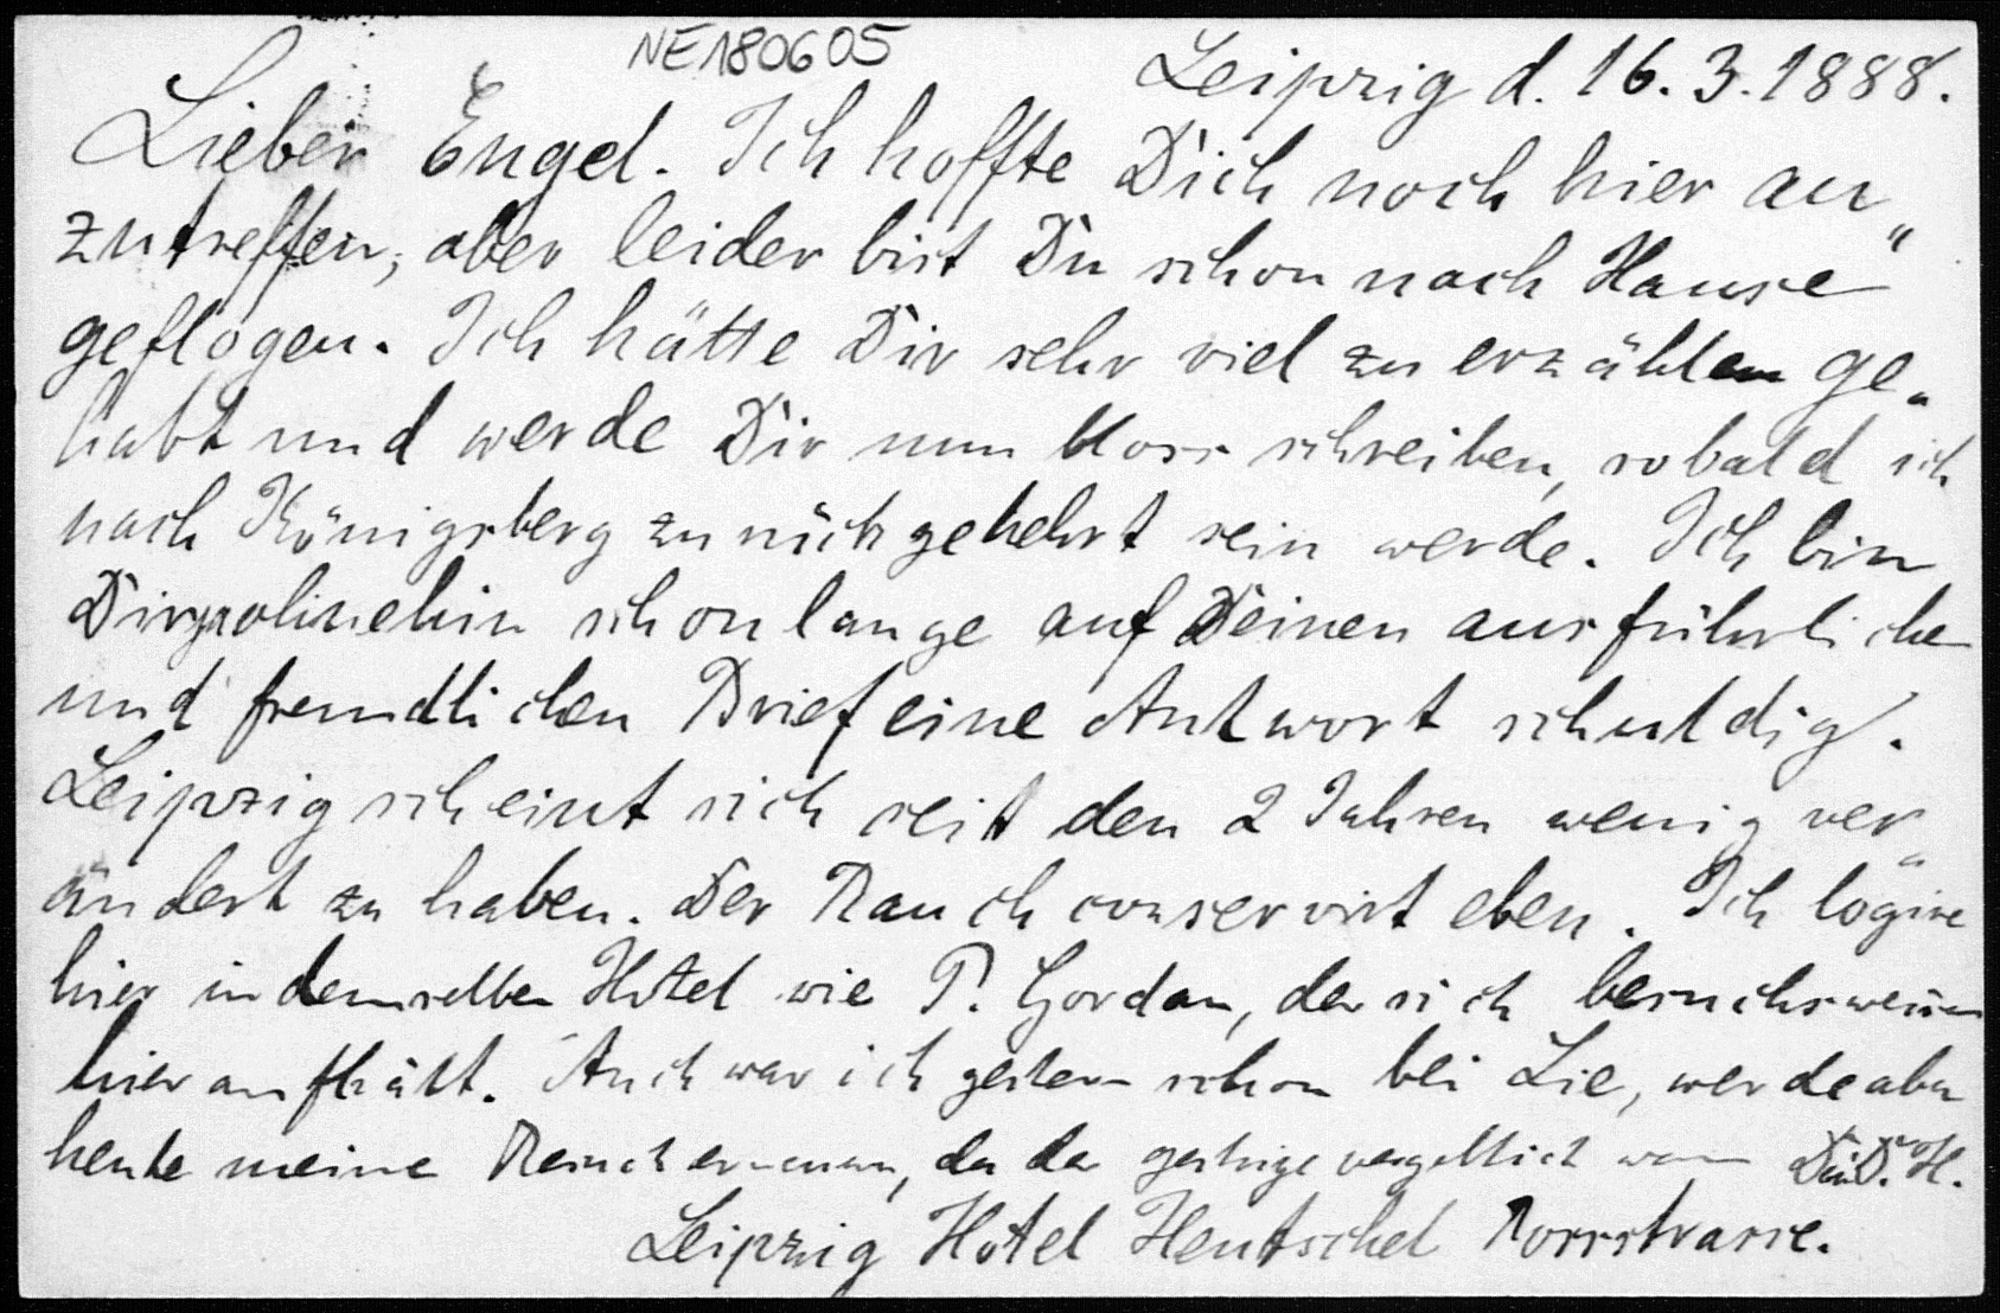 NE180605
Leipzig d. 16. 3. 1888.
Lieber Engel. Ich hoffte Dich noch hier an„
zutreffen, aber leider bist Du schon nach Hause
geflogen. Ich hätte Dir sehr viel zu erzählen ge„
habt und werde Dir nun bloss schreiben, sobald ich
nach Königsberg zurückgekehrt sein werde. Ich bin
Dir ohnehin schon lange auf Deinen ausführlichen
und freundlichen Brief eine Antwort schuldig.
Leipzig scheint sich seit den 2 Jahren wenig ver„
ändert zu haben. Der Rauch conservirt eben. Ich logire
hier in demselben Hotel wie P. Gordan, der sich besuchsweise
hier aufhält. Auch war ich gestern schon bei Lie, werde aber
heute meine Besuch erneuern, da der gestrige vergeblich war Dein D. H.
Leipzig Hotel Hentschel Rossstrasse.